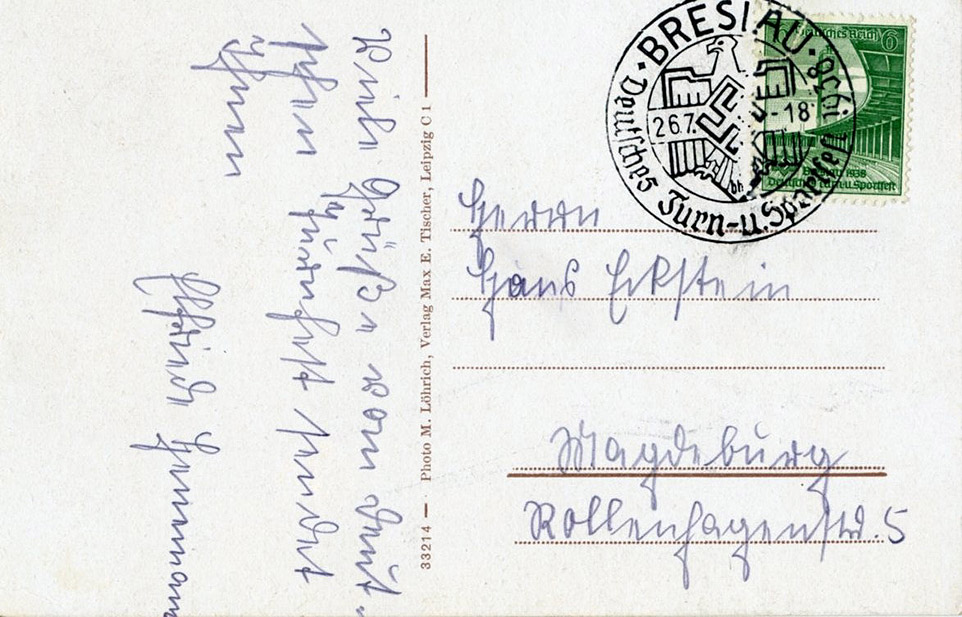 Viele Grüße vom Deut-
schen Turnfest sendet
Ihnen
Elfriede
33214 — Photo M. Löhrich, Verlag Max E. Tischer, Leipzig C 1 —
BRESLAU
26.7. -18
Deutsches Turn-u. Sportfest 1938
Deutsches Reich 6
Breslau 1938
Deutsches Turn u. Sportfest
Herrn
Hans Eckstein
Magdeburg
Rollenhagenstr. 5